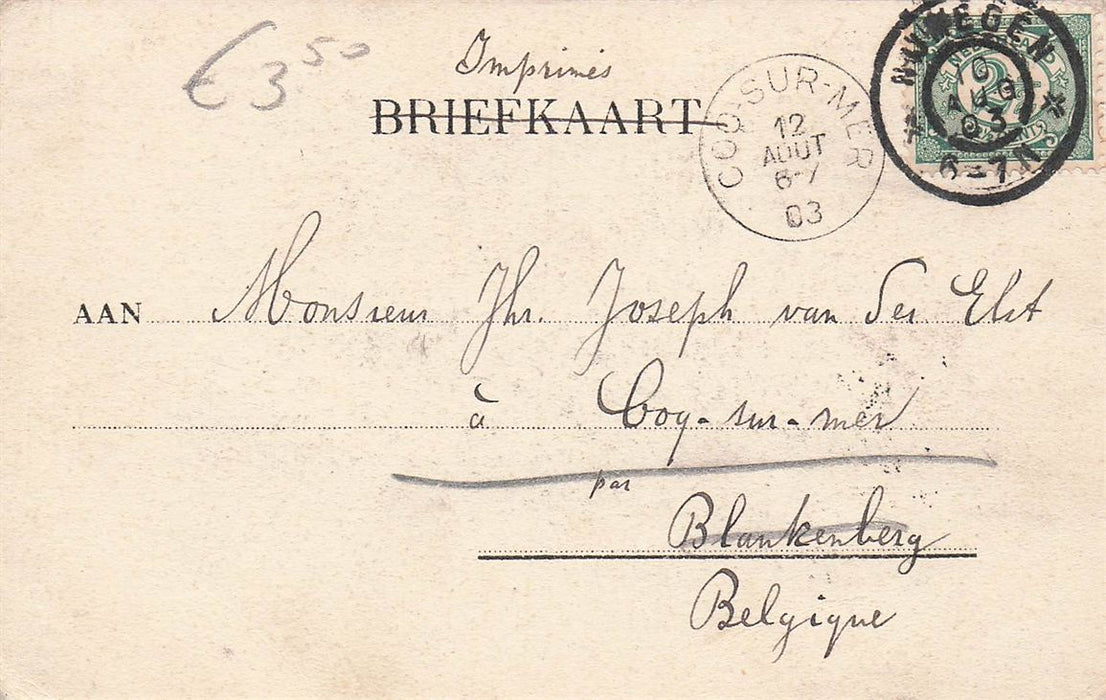 € 3 50
Imprimés
BRIEFKAART
COQ-SUR-MER
12
AOUT
6-7
03
NIJMEGEN
10
AUG
03
6-7N
AAN Monsieur Jhr. Joseph van der Elst
à Coq-sur-mer
par
Blankenberg
Belgique